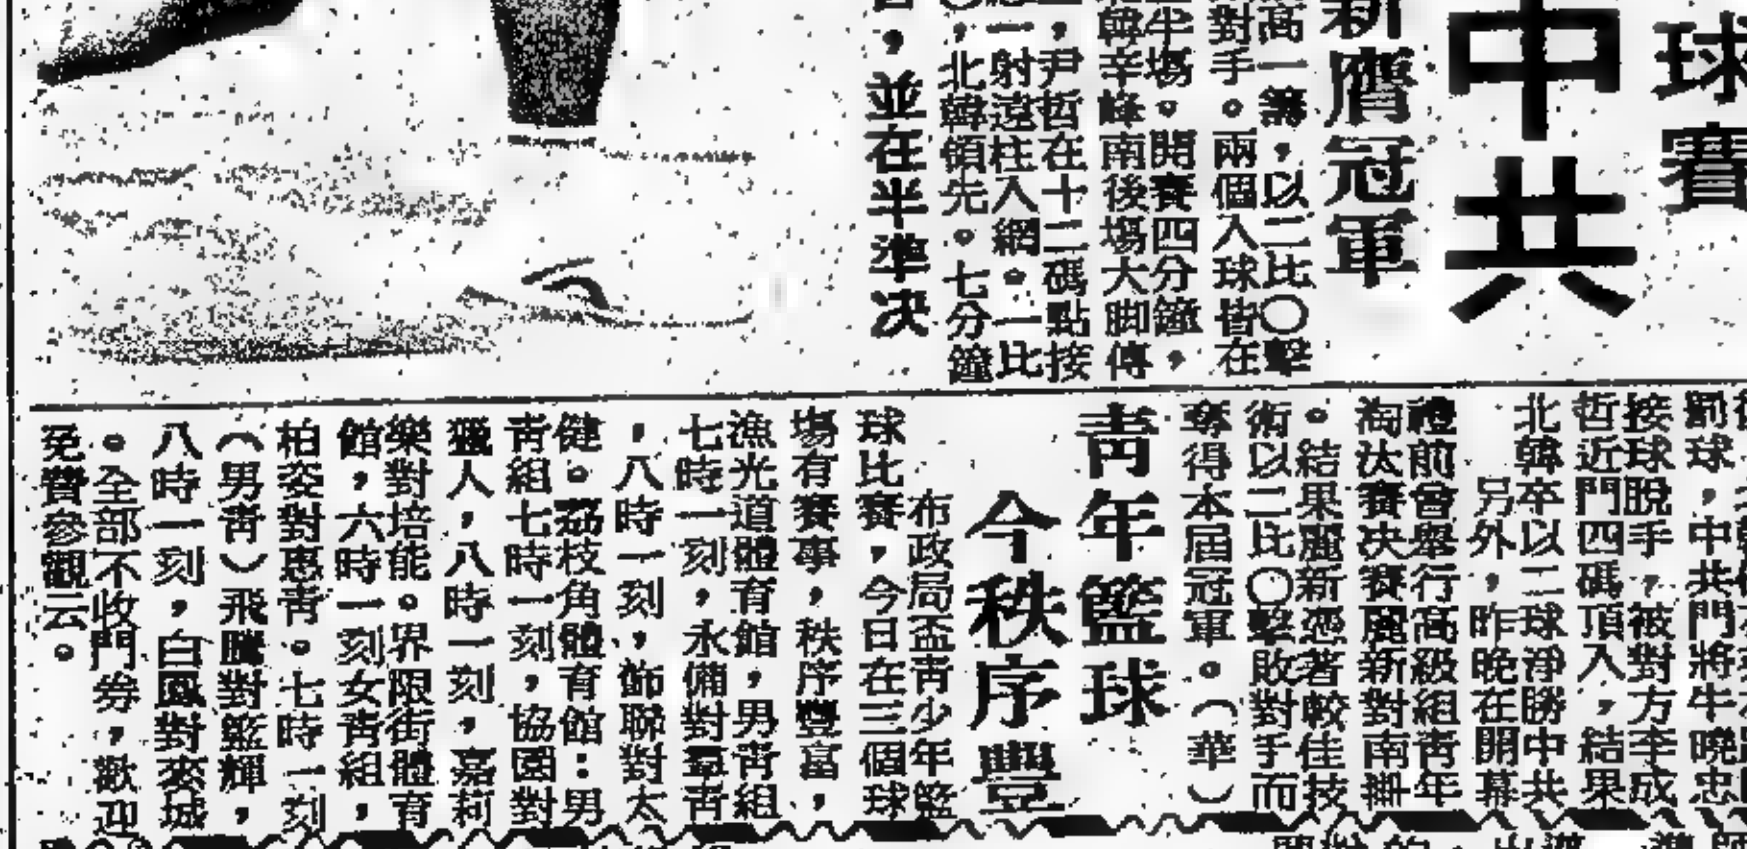 球賽
中共
新膺冠軍
高一籌，以二比〇擊
對手。兩個入球皆在
半場。開賽四分鐘，
韓辛峰南後場大脚傳
，尹哲在十二碼點接
一射遠柱入網。一比
〇，北韓領先。七分鐘
，並在半準決
罰球，中共門將牛曉忠
接球脫手，被對方李成
哲近門四碼頂入，結果
北韓卒以二球淨勝中共
另外，昨晚在開幕
禮前曾舉行高級組青年
淘汰賽決賽麗新對南華
。結果麗新憑著較佳技
術以二比〇擊敗對手而
奪得本屆冠軍。（華）
青年籃球
今秩序豐
布政局盃青少年籃
球比賽，今日在三個球
場有賽事，秩序豐富，
漁光道體育館，男青組
七時一刻，永備對羣青
，八時一刻，飾聯對太
健。荔枝角體育館：男
青組七時一刻，協園對
獵人，八時一刻，嘉莉
樂對培能。界限街體育
館，六時一刻女青組，
柏姿對惠青。七時一刻
（男青）飛騰對籃輝，
八時一刻，白鳳對麥城
。全部不收門券，歡迎
免費參觀云。